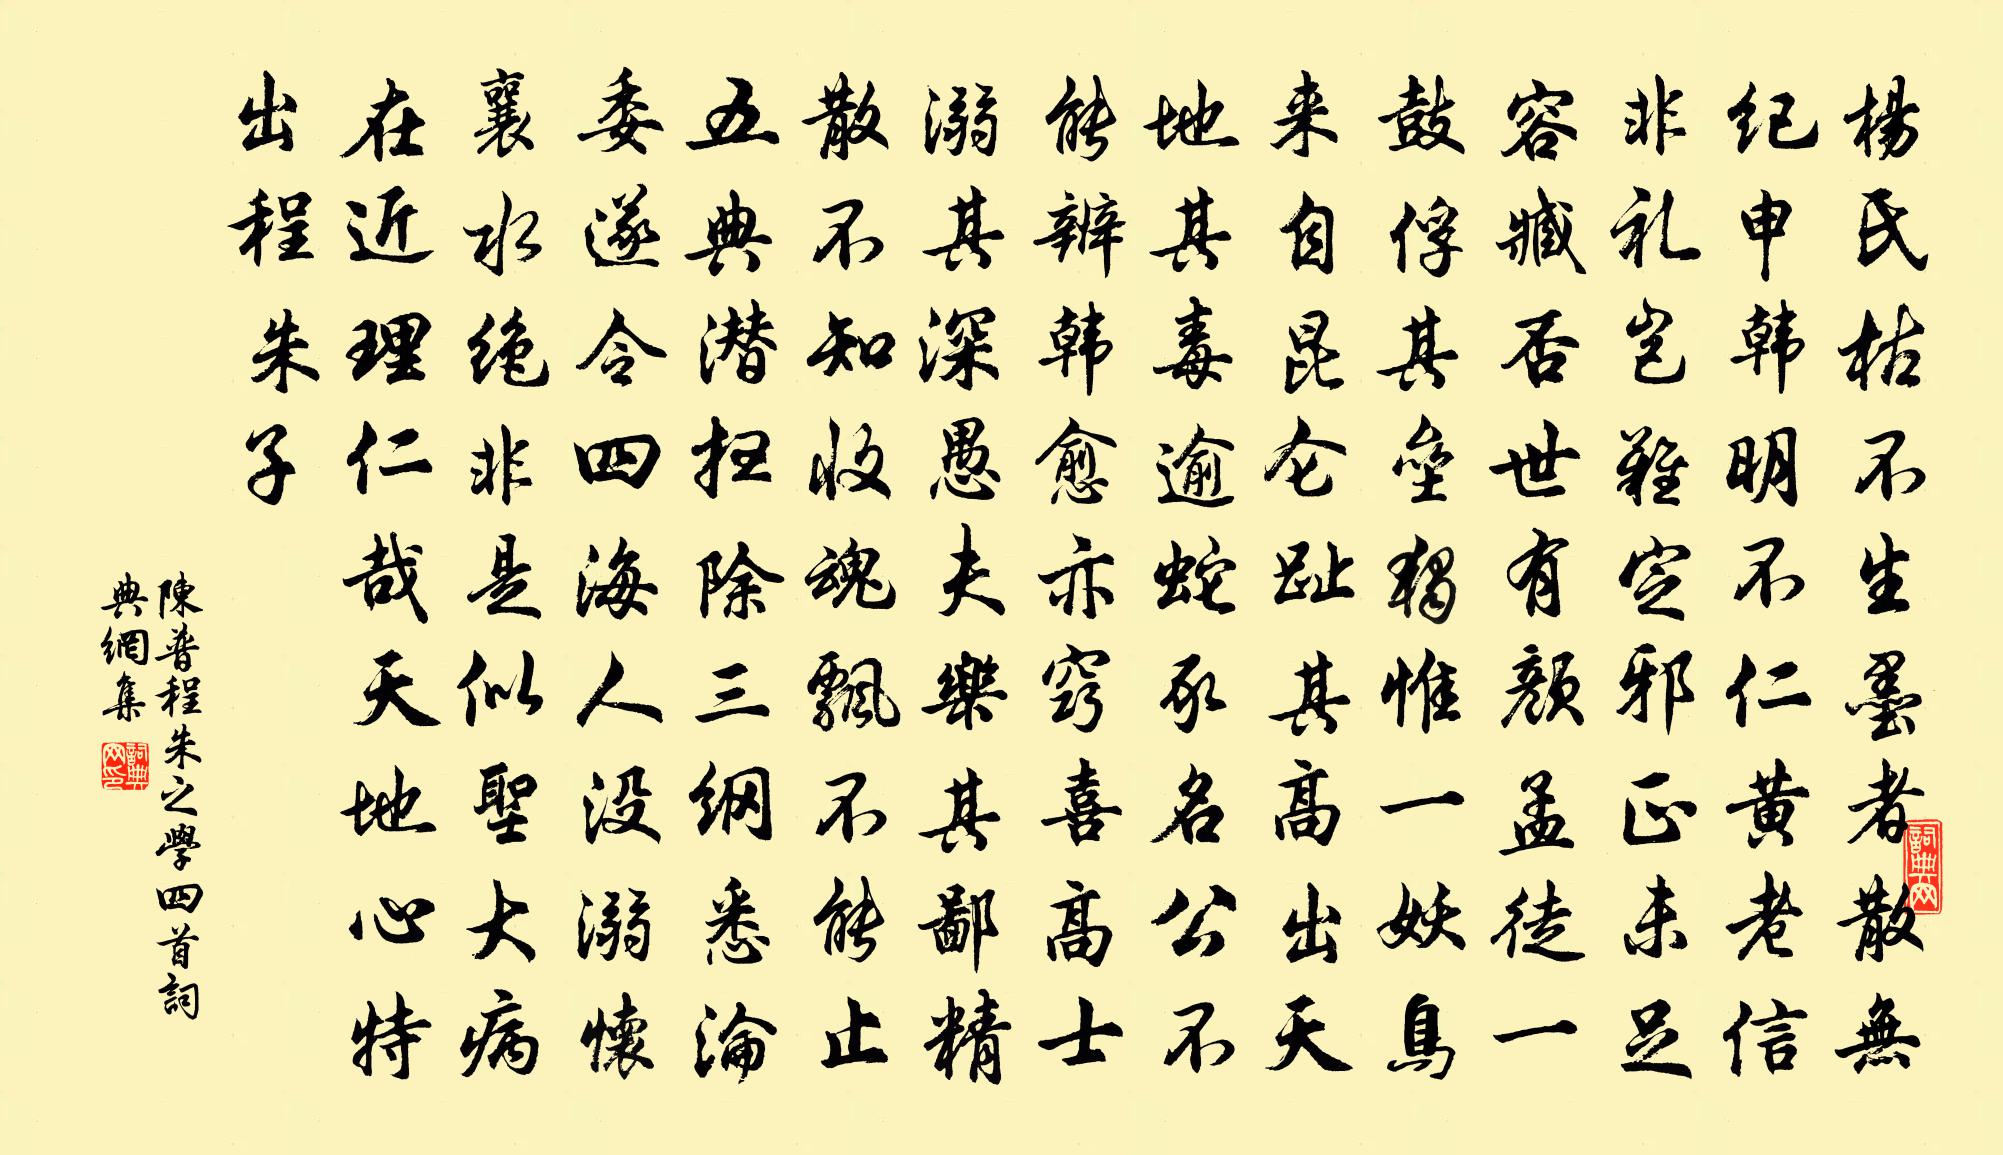 楊氏枯不生墨者散無
纪申韩明不仁黄老信
非礼岂難定邪正未足
容臧否世有颜孟徒一
鼓俘其垒独惟一妖鳥
来自昆仑趾其高出天
地其毒逾蛇豕名公不
能辨韩愈亦窍喜高士
溺其深愚夫樂其鄙精
散不知收魂飘不能止
五典潜扫除三纲悉淪
委遂令四海人没溺懷
襄水绝非是似聖大病
在近理仁哉天地心特
出程朱子
陳普程朱之學四首詞
典網集
詞典网
詞典网印